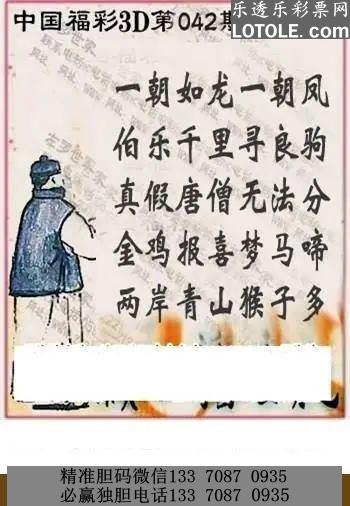 中国福彩3D第042期
乐透乐彩票网
LOTOLE.COM
一朝如龙一朝凤
伯乐千里寻良驹
真假唐僧无法分
金鸡报喜梦马啼
两岸青山猴子多
精准胆码微信133 7087 0935
必赢独胆电话133 7087 0935